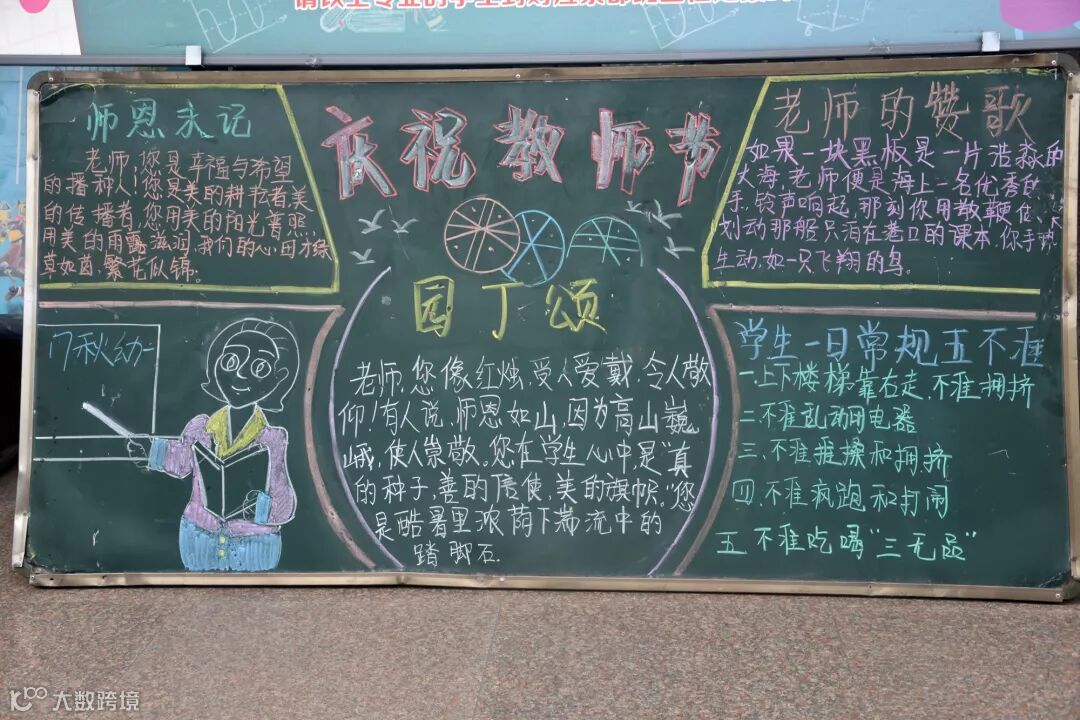 庆祝教师节
师恩未记
老师！您是幸福与希望
的播种人！您是美的耕耘者，美
的传播者，您用美的阳光普照、
用美的雨露滋润，我们的心田才绿
草如茵，繁花似锦。
17秋幼一
园丁颂
老师，您像红烛，受人爱戴，令人敬
仰！有人说，师恩如山，因为高山巍
峨，使人崇敬。您在学生心中，是“真
的种子，善的信使，美的旗帜。”您
是酷暑里浓荫下湍流中的
踏脚石.
老师的赞歌
如果一块黑板是一片浩淼的
大海，老师便是海上一名优秀的
手，铃声响起，那刻你用教鞭
划动那船只泊在港口的课本，你手
生动，如一只飞翔的鸟。
学生一日常规五不准
一.上下楼梯靠右走，不准拥挤
二.不准乱动用电器
三.不准推搡和拥挤
四.不准疯跑和打闹
五.不准吃喝“三无品”
大数跨境